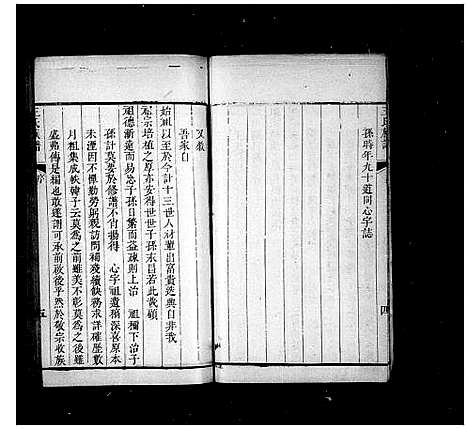 孫時年九十道同心字誌
四
又叙
吾家自
始祖以至於今計十三世人材輩出富貴迭興自非我
祖宗培植之厚亦安得世世子孫永昌若此哉顧
祖德漸遠而易忘子孫日繁而益疎則上治 祖禰下治子
孫計莫要於修譜不肖揚得 心字祖遺稿深喜原本
未湮因不憚勤勞躬親訪問補殘續缺務求詳確歷數
月粗集成帙韓子云莫為之前雖美不彰莫為之後雖
盛弗傳是稿也敢遂謂可承前啟後乎然於敬宗收族
五